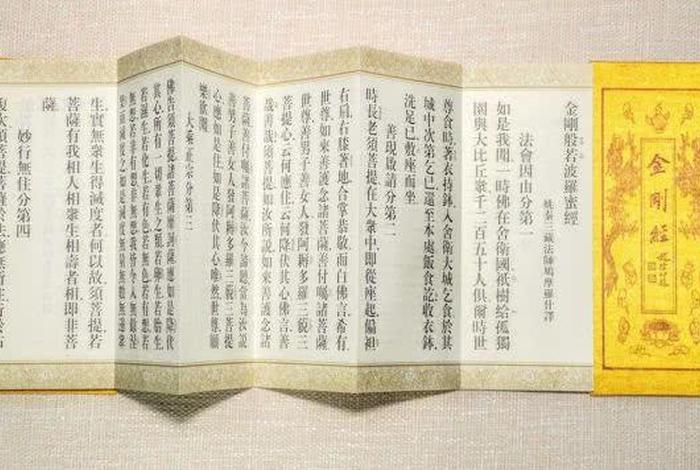 金剛經
金剛般若波羅蜜經
姚秦三藏法師鳩摩羅什譯
法會因由分第一
如是我聞一時佛在舍衛國祇樹給孤獨
園與大比丘衆千二百五十人俱爾時世
尊食時著衣持鉢入舍衛大城乞食於其
城中次第乞已還至本處飯食訖收衣鉢
洗足已敷座而坐
善現啟請分第二
時長老須菩提在大衆中即從座起偏袒
右肩右膝著地合掌恭敬而白佛言希有
世尊如來善護念諸菩薩善付囑諸菩薩
世尊善男子善女人發阿耨多羅三藐三
菩提心云何應住云何降伏其心佛言善
哉善哉須菩提如汝所說如來善護念諸
菩薩善付囑諸菩薩汝今諦聽當為汝說
善男子善女人發阿耨多羅三藐三菩提
心應如是住如是降伏其心唯然世尊願
樂欲聞
大乘正宗分第三
佛告須菩提諸菩薩摩訶薩應如是降伏
其心所有一切衆生之類若卵生若胎生
若濕生若化生若有色若無色若有想若
無想若非有想非無想我皆令入無餘涅
槃而滅度之如是滅度無量無數無邊衆
生實無衆生得滅度者何以故須菩提若
菩薩有我相人相衆生相壽者相即非菩
薩
妙行無住分第四
復次須菩提菩薩於法應無所住行於布